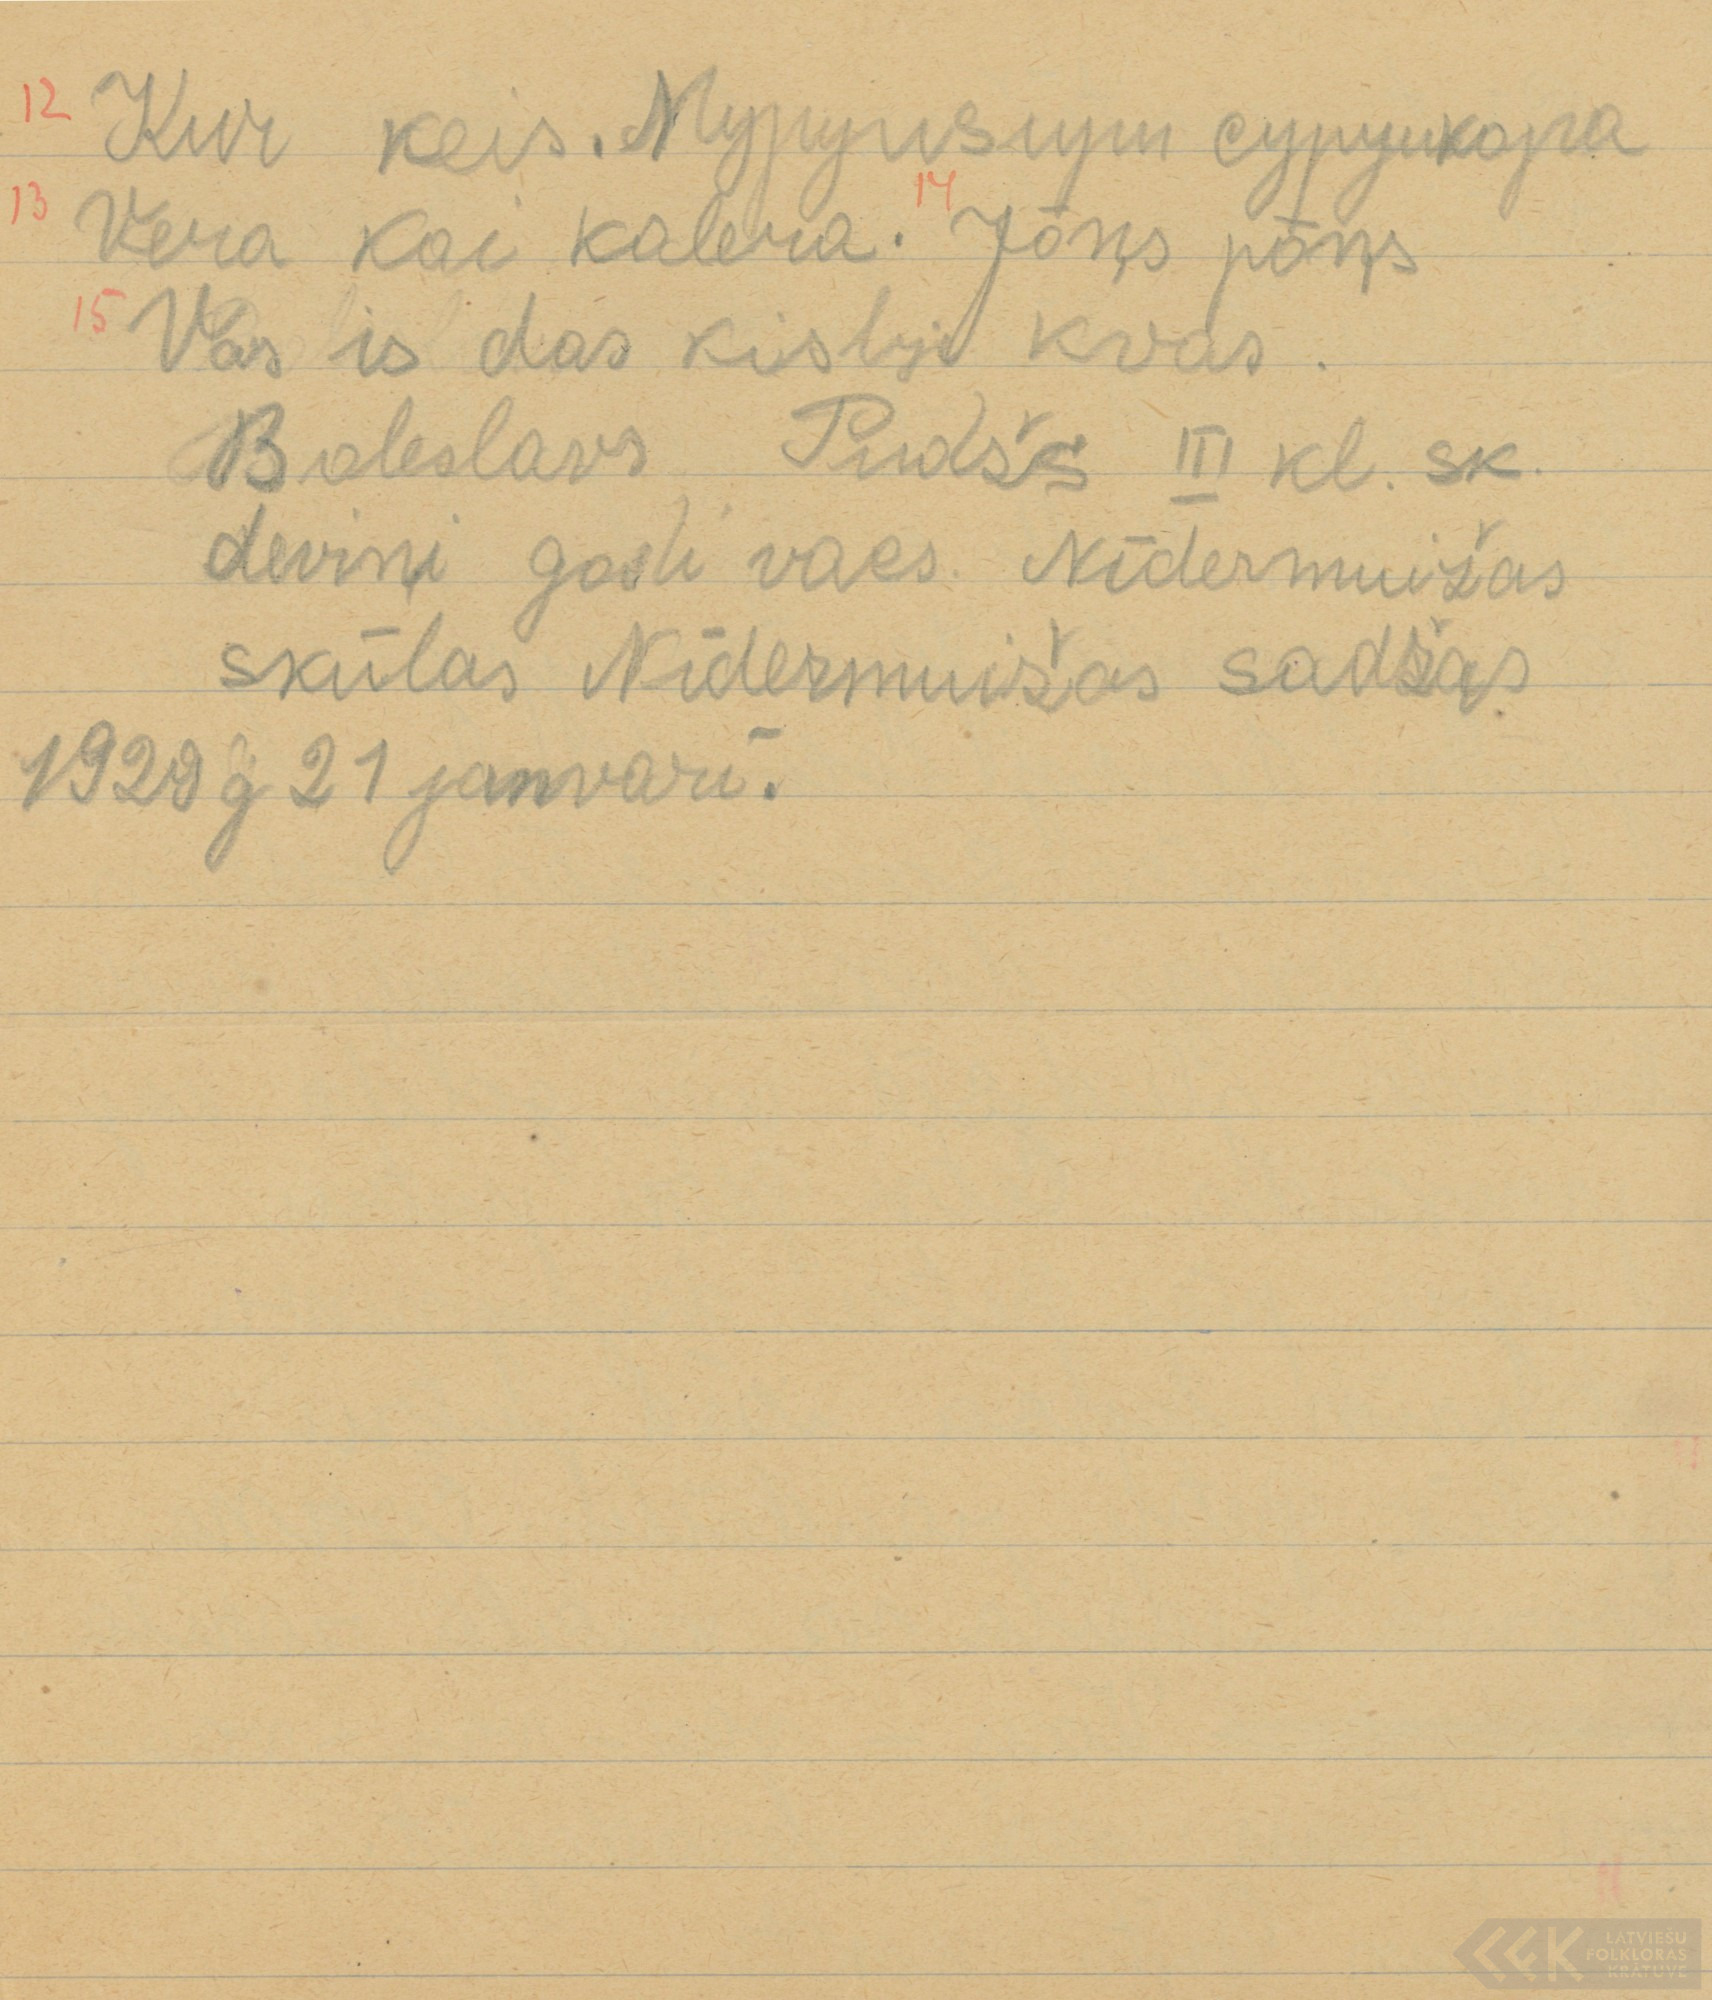 12 Kur keis.
13 Vera kai kalera. 14 Jōņs pōņs
15 Vas is das kislyi kvas.
Boleslavs III kl. sk.
deviņi godi vacs. Nīdermuižas
skūlas Nīdermuižas sadžas
1929 g 21 janvarī.
LATVIEŠU
FOLKLORAS
KRĀTUVE